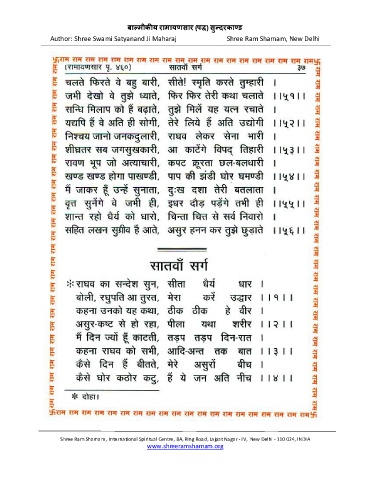 बाल्मीकीय रामायणसार (पद्य) सुन्दरकाण्ड
Author: Shree Swami Satyanand Ji Maharaj Shree Ram Sharnam, New Delhi
卐राम राम राम राम राम राम राम राम राम राम राम राम राम राम राम राम राम राम राम राम राम卐
(रामायणसार पृ. ४६०) सातवाँ सर्ग ३७
चलते फिरते वे बहु बारी, सीते! स्मृति करते तुम्हारी ।
जभी देखो वे तुझे ध्याते, फिर फिर तेरी कथा चलाते ।।५१।।
सन्धि मिलाप को हैं बढ़ाते, तुझे मिलें यह यत्न रचाते ।
यद्यपि हैं वे अति ही सोगी, तेरे लिये हैं अति उद्योगी ।।५२।।
निश्चय जानो जनकदुलारी, राघव लेकर सेना भारी ।
शीघ्रतर सब जगसुखकारी, आ काटेंगे विपद् तिहारी ।।५३।।
रावण भूप जो अत्याचारी, कपट क्रूरता छल-बलधारी ।
खण्ड खण्ड होगा पाखण्डी, पाप की झंडी घोर घमण्डी ।।५४।।
मैं जाकर हूँ उन्हें सुनाता, दुःख दशा तेरी बतलाता ।
वृत्त सुनेंगे वे जभी ही, इधर दौड़ पड़ेंगे तभी ही ।।५५।।
शान्त रहो धैर्य को धारो, चिन्ता चित्त से सर्व निवारो ।
सहित लखन सुग्रीव हैं आते, असुर हनन कर तुझे छुड़ाते ।।५६।।
सातवाँ सर्ग
※राघव का सन्देश सुन, सीता धैर्य धार ।
बोली, रघुपति आ तुरत, मेरा करें उद्धार ।।१।।
कहना उनको यह कथा, ठीक ठीक हे वीर ।
असुर-कष्ट से हो रहा, पीला यथा शरीर ।।२।।
मैं दिन ज्यों हूँ काटती, तड़प तड़प दिन-रात ।
कहना राघव को सभी, आदि-अन्त तक बात ।।३।।
कैसे दिन हैं बीतते, मेरे असुरों बीच ।
कैसे घोर कठोर कटु, हैं ये जन अति नीच ।।४।।
※ दोहा।
卐राम राम राम राम राम राम राम राम राम राम राम राम राम राम राम राम राम राम राम राम राम卐
Shree Ram Sharnam, International Spiritual Centre, 8A, Ring Road, Lajpat Nagar - IV, New Delhi - 110 024, INDIA
www.shreeramsharnam.org